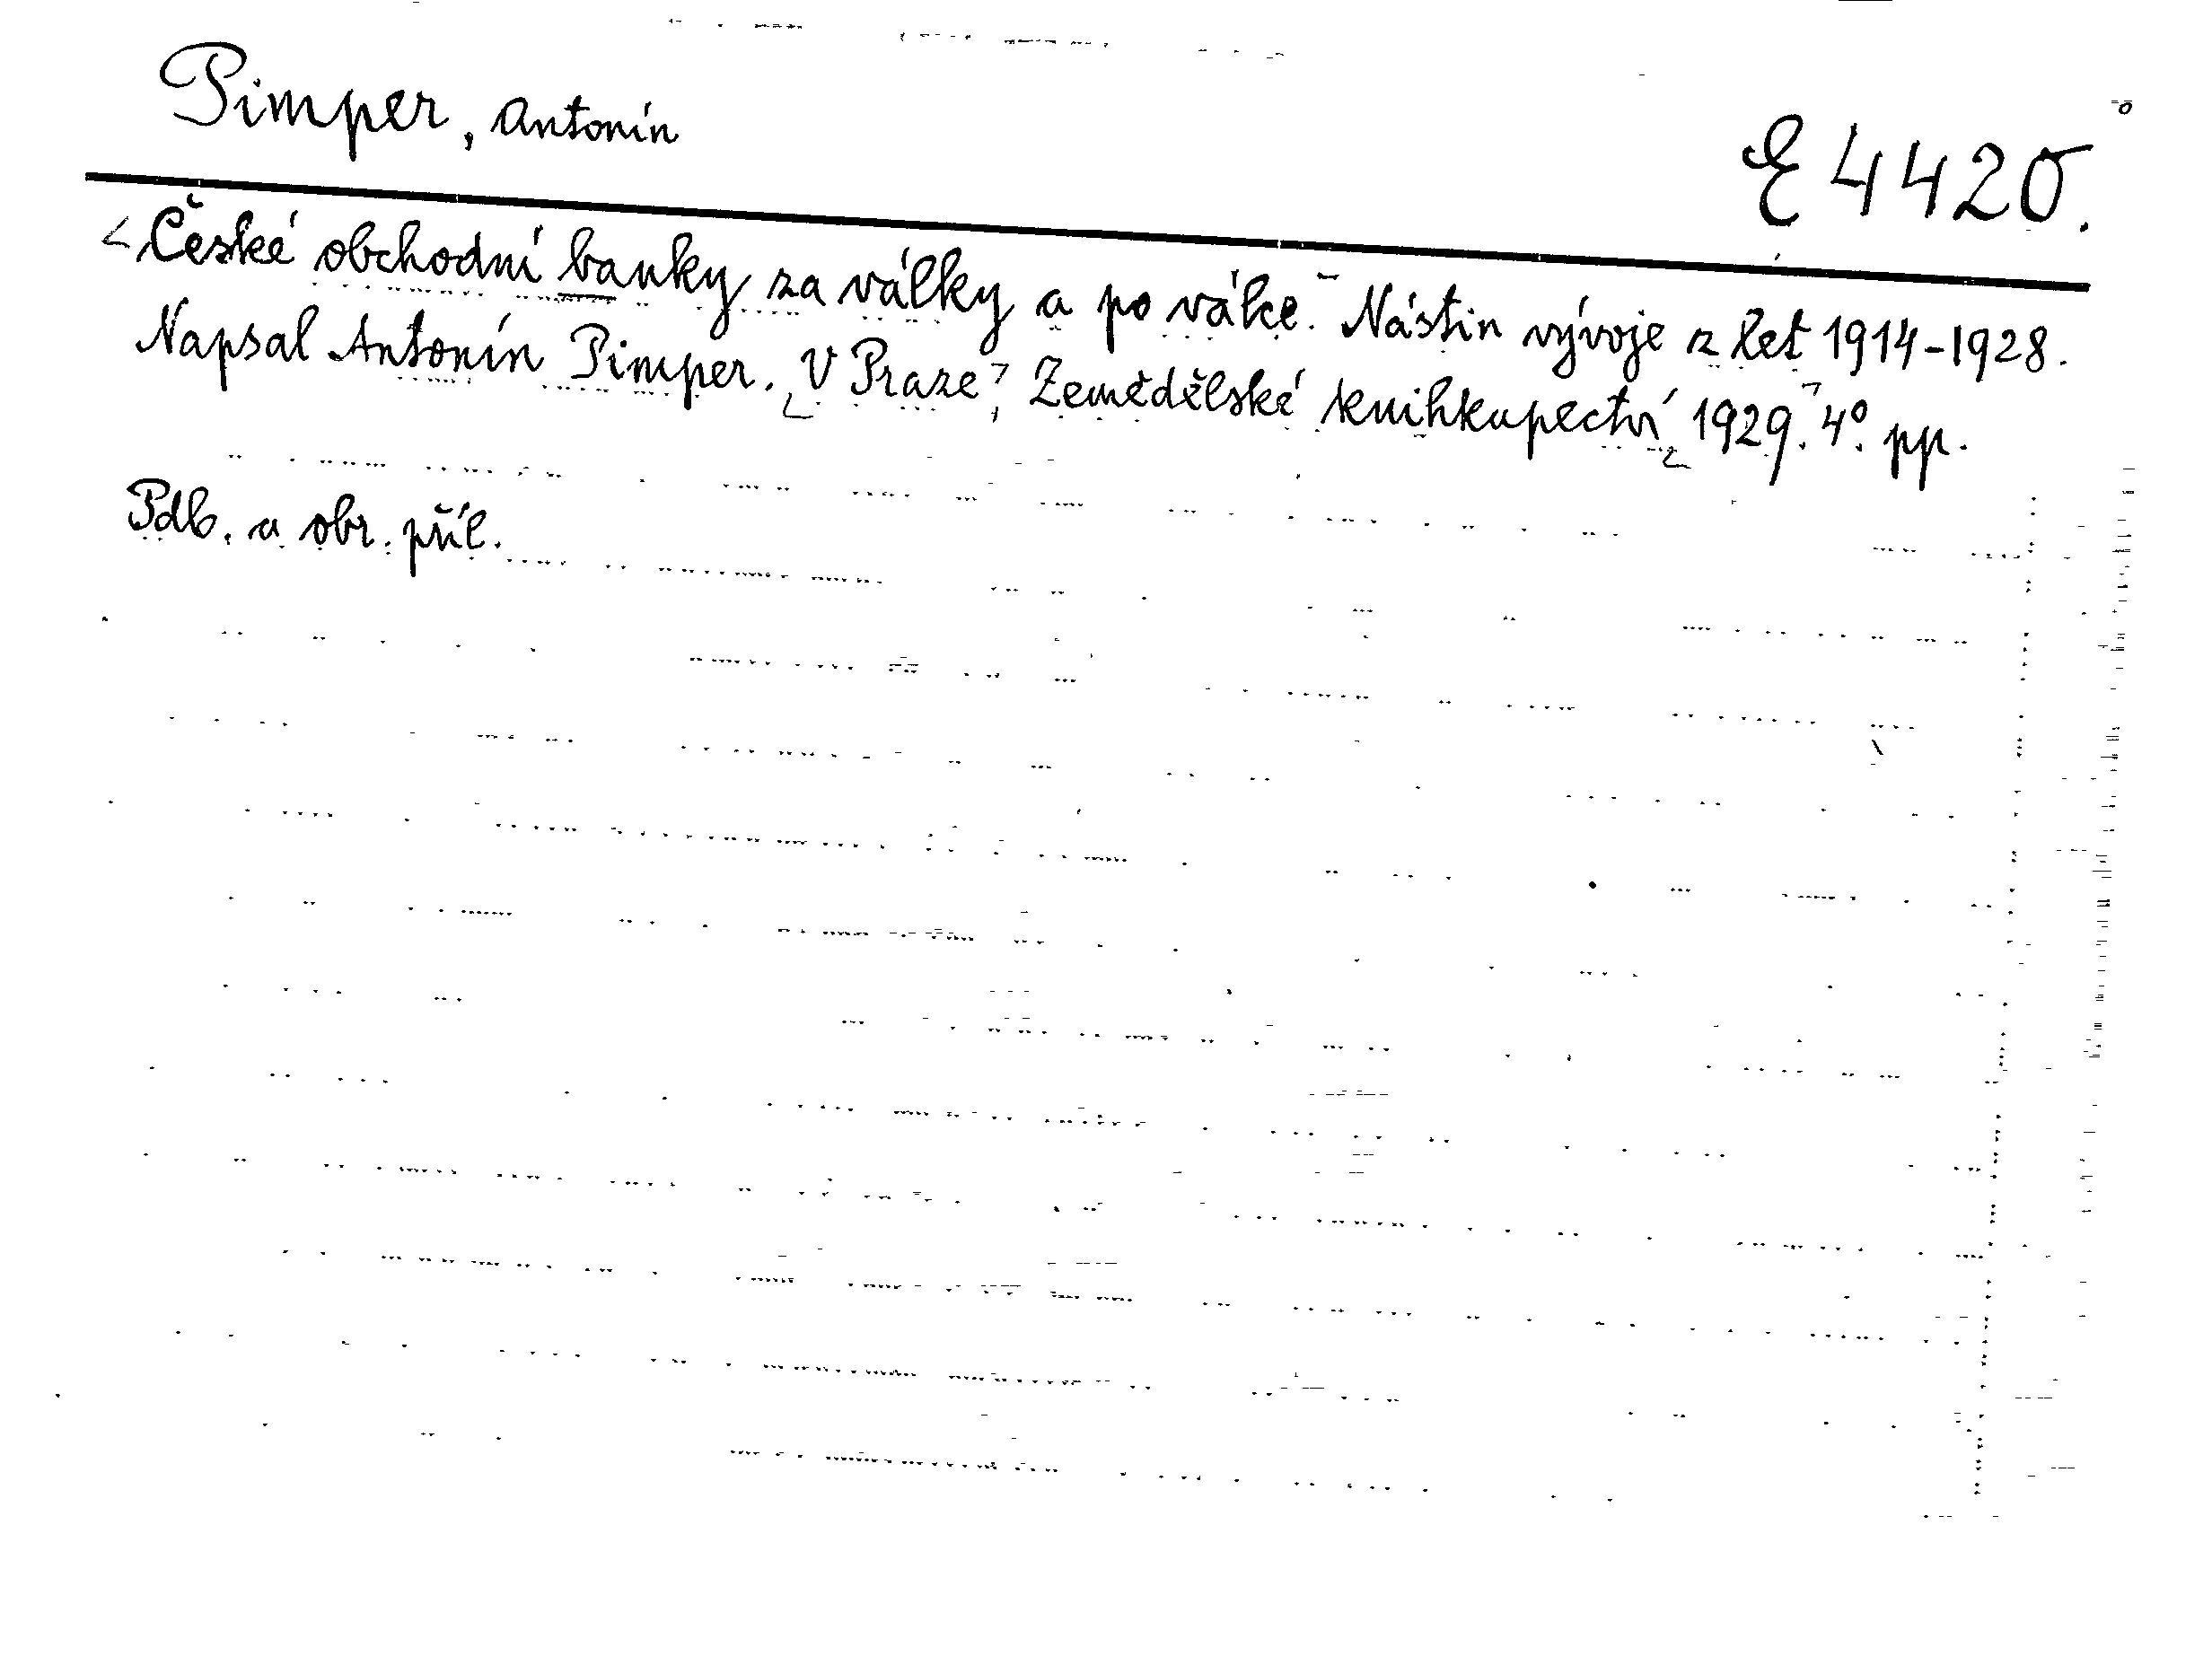 Pimper, Antonín
E 4420.
České obchodní banky za války a po válce. Nástin vývoje z let 1914-1928.
Napsal Antonín Pimper. V Praze, Zemědělské knihkupectví 1929. 4º. pp.
Pdb. a obr. příl.